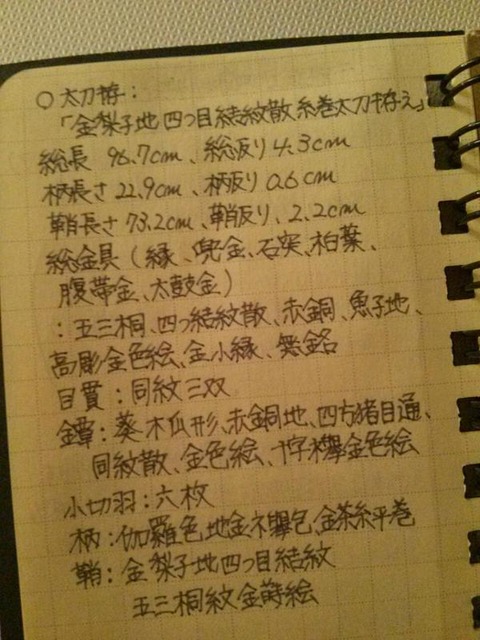 ○太刀拵:
「金梨子地四つ目結紋散糸巻太刀拵え」
総長 96.7cm、総反り4.3cm
柄長さ22.9cm、柄反り0.6cm
鞘長さ73.2cm、鞘反り、2.2cm
総金具(縁、兜金、石突、柏葉、
腹帯金、太鼓金)
:五三桐、四つ結紋散、赤銅、魚子地、
高彫金色絵、金小縁、無銘
目貫:同紋三双
鐔:葵木瓜形、赤銅地、四方猪目通、
同紋散、金色絵、十字襷金色絵
小切羽:六枚
柄:伽羅色地金襴包、金茶糸平巻
鞘:金梨子地四つ目結紋
五三桐紋金蒔絵